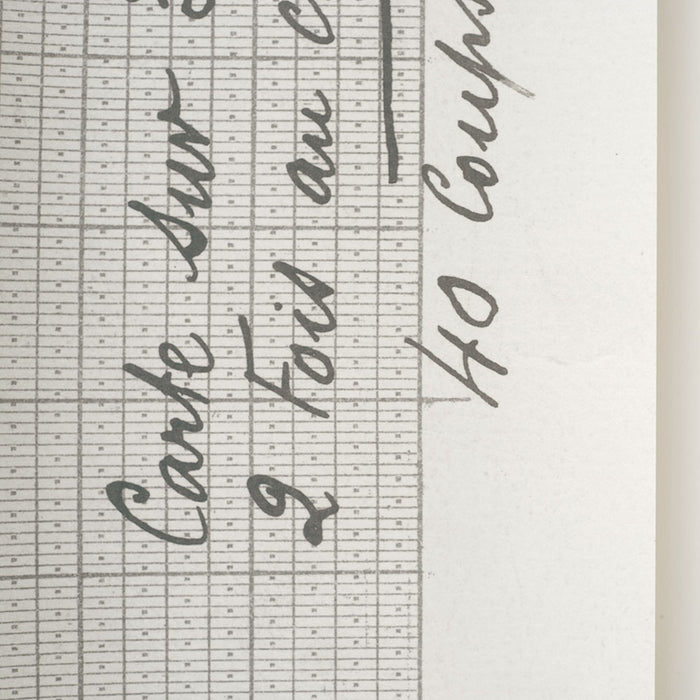 Carte sur
2 Fois au
40 Coups